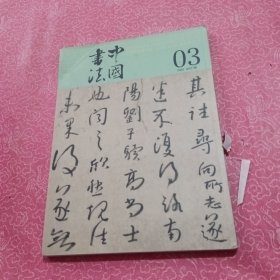 中國
書法
03
其往尋向所志遂
迷不復得路南
陽劉子驥高尚士
也聞之欣然規往
未果尋